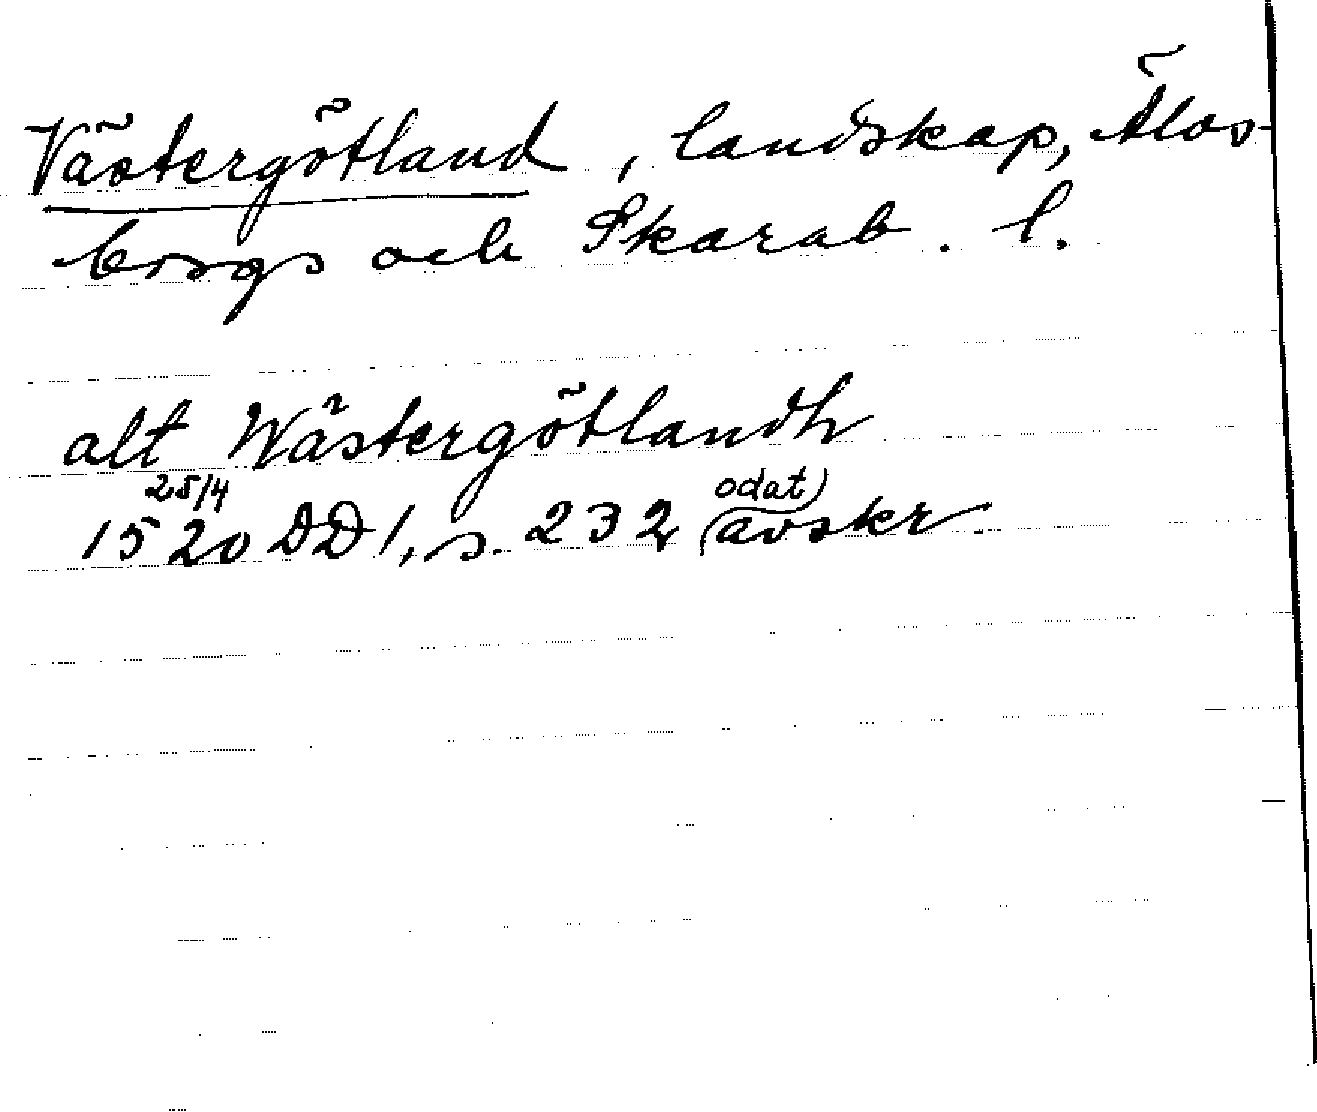 Västergötland, landskap, Älvs-
borgs och Skarab. l.
alt Wästergötlandh
25/4
1520 DD 1, s. 232 (odat) avskr.